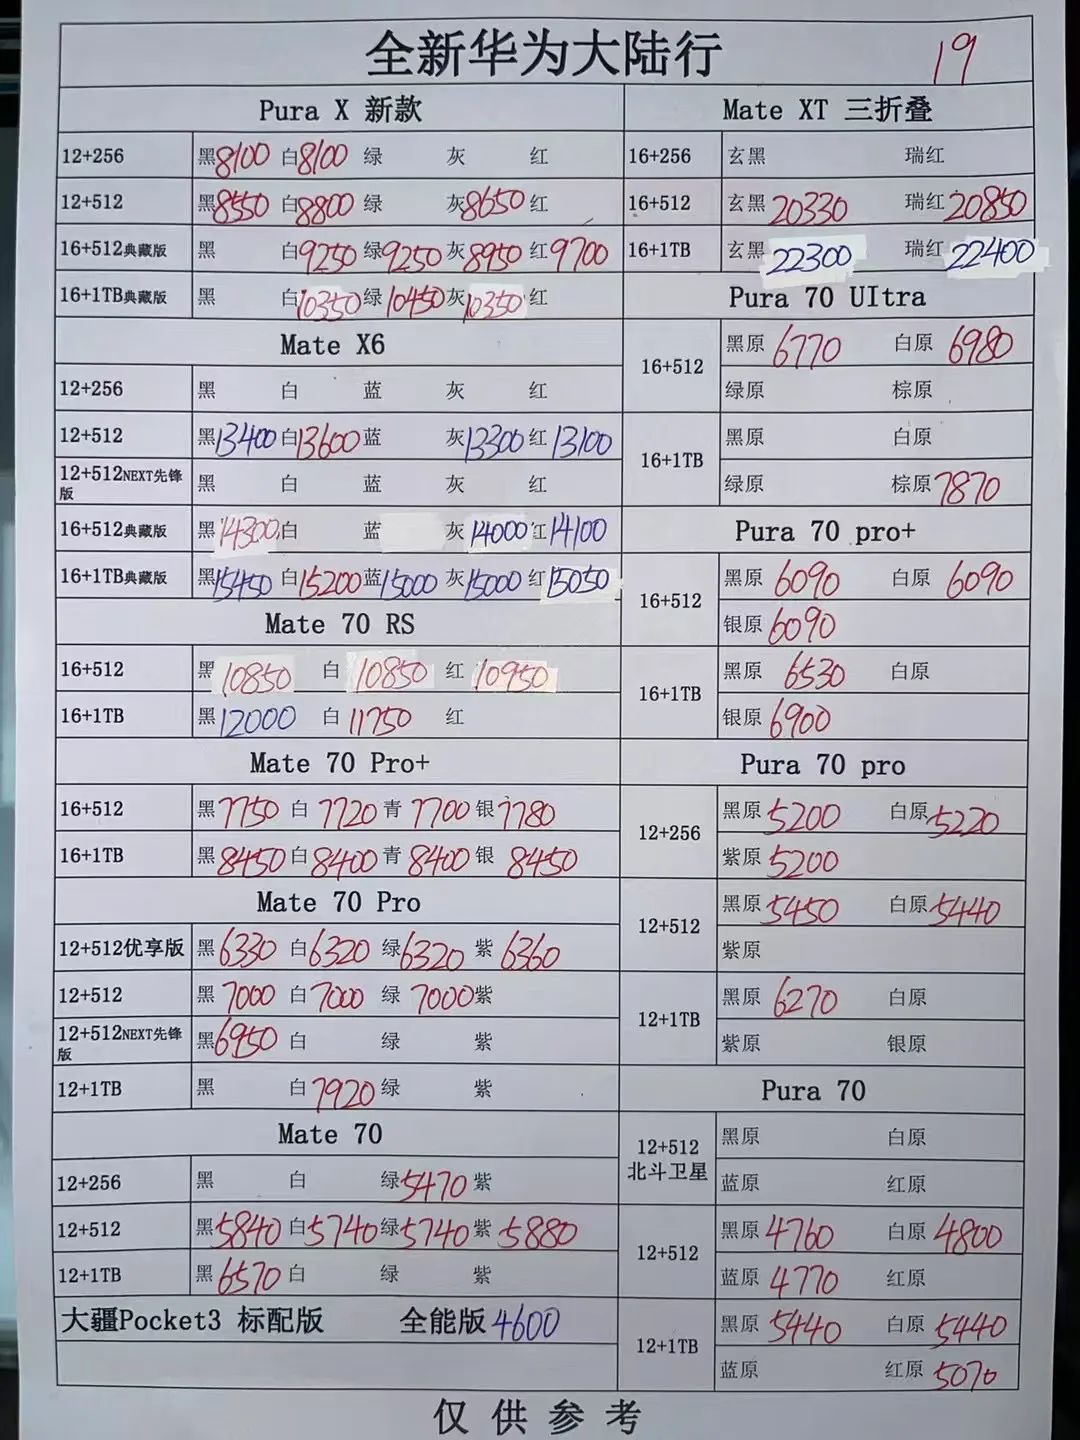 全新华为大陆行 19
Pura X 新款
12+256 黑8100 白8100 绿 灰 红
12+512 黑8550 白8800 绿 灰8650 红
16+512典藏版 黑 白9250 绿9250 灰8950 红9700
16+1TB典藏版 黑 白10350 绿10450 灰10350 红
Mate X6
12+256 黑 白 蓝 灰 红
12+512 黑13400 白13600 蓝 灰13300 红13100
12+512NEXT先锋版 黑 白 蓝 灰 红
16+512典藏版 黑14300 白 蓝 灰14000 红14100
16+1TB典藏版 黑15450 白15200 蓝15000 灰15000 红15050
Mate 70 RS
16+512 黑10850 白10850 红10950
16+1TB 黑12000 白11750 红
Mate 70 Pro+
16+512 黑7750 白7720 青7700 银7780
16+1TB 黑8450 白8400 青8400 银8450
Mate 70 Pro
12+512优享版 黑6330 白6320 绿6320 紫6360
12+512 黑7000 白7000 绿7000 紫
12+512NEXT先锋版 黑6950 白 绿 紫
12+1TB 黑 白7920 绿 紫
Mate 70
12+256 黑 白 绿5470 紫
12+512 黑5840 白5740 绿5740 紫5880
12+1TB 黑6570 白 绿 紫
大疆Pocket3 标配版 全能版4600
Mate XT 三折叠
16+256 玄黑 瑞红
16+512 玄黑20330 瑞红20850
16+1TB 玄黑22300 瑞红22400
Pura 70 UItra
16+512
黑原6770 白原6980
绿原 棕原
16+1TB
黑原 白原
绿原 棕原7870
Pura 70 pro+
16+512
黑原6090 白原6090
银原6090
16+1TB
黑原6530 白原
银原6900
Pura 70 pro
12+256
黑原5200 白原5220
紫原5200
12+512
黑原5450 白原5440
紫原
12+1TB
黑原6270 白原
紫原 银原
Pura 70
12+512
北斗卫星
黑原 白原
蓝原 红原
12+512
黑原4760 白原4800
蓝原4770 红原
12+1TB
黑原5440 白原5440
蓝原 红原5070
仅供参考